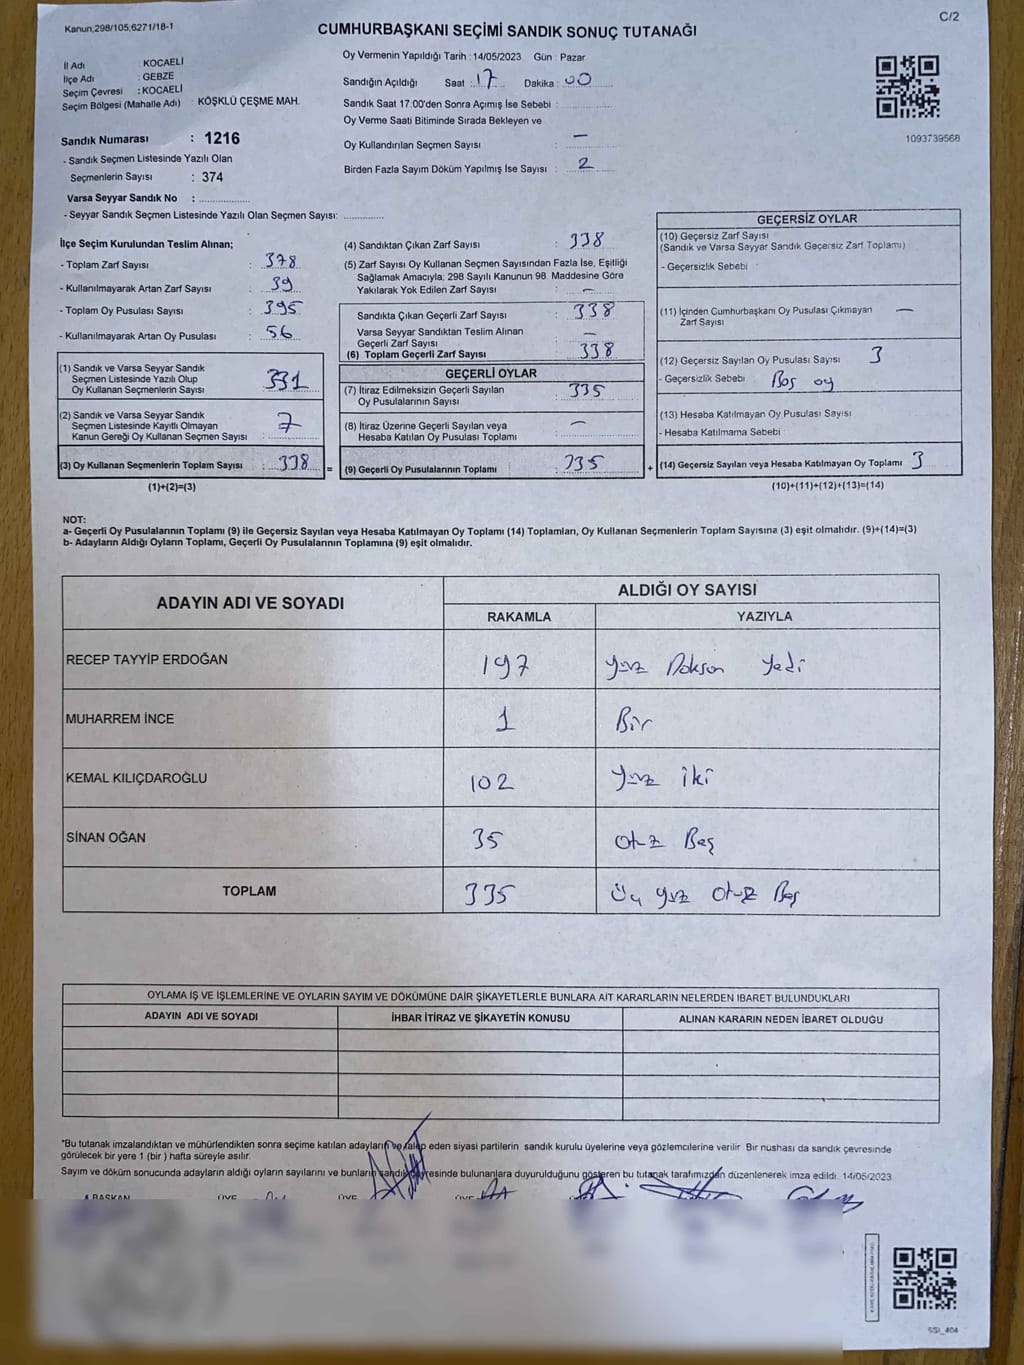 Kanun,298/105,6271/18-1
C/2
CUMHURBAŞKANI SEÇİMİ SANDIK SONUÇ TUTANAĞI
İl Adı KOCAELİ
İlçe Adı : GEBZE
Seçim Çevresi : KOCAELİ
Seçim Bölgesi (Mahalle Adı) : KÖŞKLÜ ÇEŞME MAH.
Sandık Numarası : 1216
- Sandık Seçmen Listesinde Yazılı Olan
Seçmenlerin Sayısı : 374
Varsa Seyyar Sandık No :
- Seyyar Sandık Seçmen Listesinde Yazılı Olan Seçmen Sayısı:
Oy Vermenin Yapıldığı Tarih : 14/05/2023 Gün : Pazar
Sandığın Açıldığı Saat : 17 Dakika : 00
Sandık Saat 17.00'den Sonra Açımış İse Sebebi :
Oy Verme Saati Bitiminde Sırada Bekleyen ve
Oy Kullandırılan Seçmen Sayısı : —
Birden Fazla Sayım Döküm Yapılmış İse Sayısı : 2
1093739568
İlçe Seçim Kurulundan Teslim Alınan;
- Toplam Zarf Sayısı : 378
- Kullanılmayarak Artan Zarf Sayısı : 39
- Toplam Oy Pusulası Sayısı : 395
- Kullanılmayarak Artan Oy Pusulası : 56
(1) Sandık ve Varsa Seyyar Sandık
Seçmen Listesinde Yazılı Olup
Oy Kullanan Seçmenlerin Sayısı : 331
(2) Sandık ve Varsa Seyyar Sandık
Seçmen Listesinde Kayıtlı Olmayan
Kanun Gereği Oy Kullanan Seçmen Sayısı : 7
(3) Oy Kullanan Seçmenlerin Toplam Sayısı : 338 =
(1)+(2)=(3)
(4) Sandıktan Çıkan Zarf Sayısı : 338
(5) Zarf Sayısı Oy Kullanan Seçmen Sayısından Fazla İse, Eşitliği
Sağlamak Amacıyla; 298 Sayılı Kanunun 98. Maddesine Göre
Yakılarak Yok Edilen Zarf Sayısı : —
Sandıkta Çıkan Geçerli Zarf Sayısı : 338
Varsa Seyyar Sandıktan Teslim Alınan
Geçerli Zarf Sayısı : —
(6) Toplam Geçerli Zarf Sayısı : 338
GEÇERLİ OYLAR
(7) İtiraz Edilmeksizin Geçerli Sayılan
Oy Pusulalarının Sayısı : 335
(8) İtiraz Üzerine Geçerli Sayılan veya
Hesaba Katılan Oy Pusulası Toplamı : —
(9) Geçerli Oy Pusulalarının Toplamı : 335 +
GEÇERSİZ OYLAR
(10) Geçersiz Zarf Sayısı
(Sandık ve Varsa Seyyar Sandık Geçersiz Zarf Toplamı)
- Geçersizlik Sebebi :
(11) İçinden Cumhurbaşkanı Oy Pusulası Çıkmayan —
Zarf Sayısı
(12) Geçersiz Sayılan Oy Pusulası Sayısı 3
- Geçersizlik Sebebi : Boş oy
(13) Hesaba Katılmayan Oy Pusulası Sayısı
- Hesaba Katılmama Sebebi
(14) Geçersiz Sayılan veya Hesaba Katılmayan Oy Toplamı 3
(10)+(11)+(12)+(13)=(14)
NOT:
a- Geçerli Oy Pusulalarının Toplamı (9) ile Geçersiz Sayılan veya Hesaba Katılmayan Oy Toplamı (14) Toplamları, Oy Kullanan Seçmenlerin Toplam Sayısına (3) eşit olmalıdır. (9)+(14)=(3)
b- Adayların Aldığı Oyların Toplamı, Geçerli Oy Pusulalarının Toplamına (9) eşit olmalıdır.
ADAYIN ADI VE SOYADI
ALDIĞI OY SAYISI
RAKAMLA YAZIYLA
RECEP TAYYİP ERDOĞAN 197 yüz Doksan Yedi
MUHARREM İNCE 1 Bir
KEMAL KILIÇDAROĞLU 102 yüz iki
SİNAN OĞAN 35 otuz Beş
TOPLAM 335 Üç yüz otuz Beş
OYLAMA İŞ VE İŞLEMLERİNE VE OYLARIN SAYIM VE DÖKÜMÜNE DAİR ŞİKAYETLERLE BUNLARA AİT KARARLARIN NELERDEN İBARET BULUNDUKLARI
ADAYIN ADI VE SOYADI İHBAR İTİRAZ VE ŞİKAYETİN KONUSU ALINAN KARARIN NEDEN İBARET OLDUĞU
*Bu tutanak imzalandıktan ve mühürlendikten sonra seçime katılan adayların ve talep eden siyasi partilerin sandık kurulu üyelerine veya gözlemcilerine verilir. Bir nushası da sandık çevresinde
görülecek bir yere 1 (bir ) hafta süreyle asılır.
Sayım ve döküm sonucunda adayların aldığı oyların sayılarını ve bunların sandık çevresinde bulunanlara duyurulduğunu gösteren bu tutanak tarafımızdan düzenlenerek imza edildi. 14/05/2023
BAŞKAN ÜYE ÜYE ÜYE
SSI_404